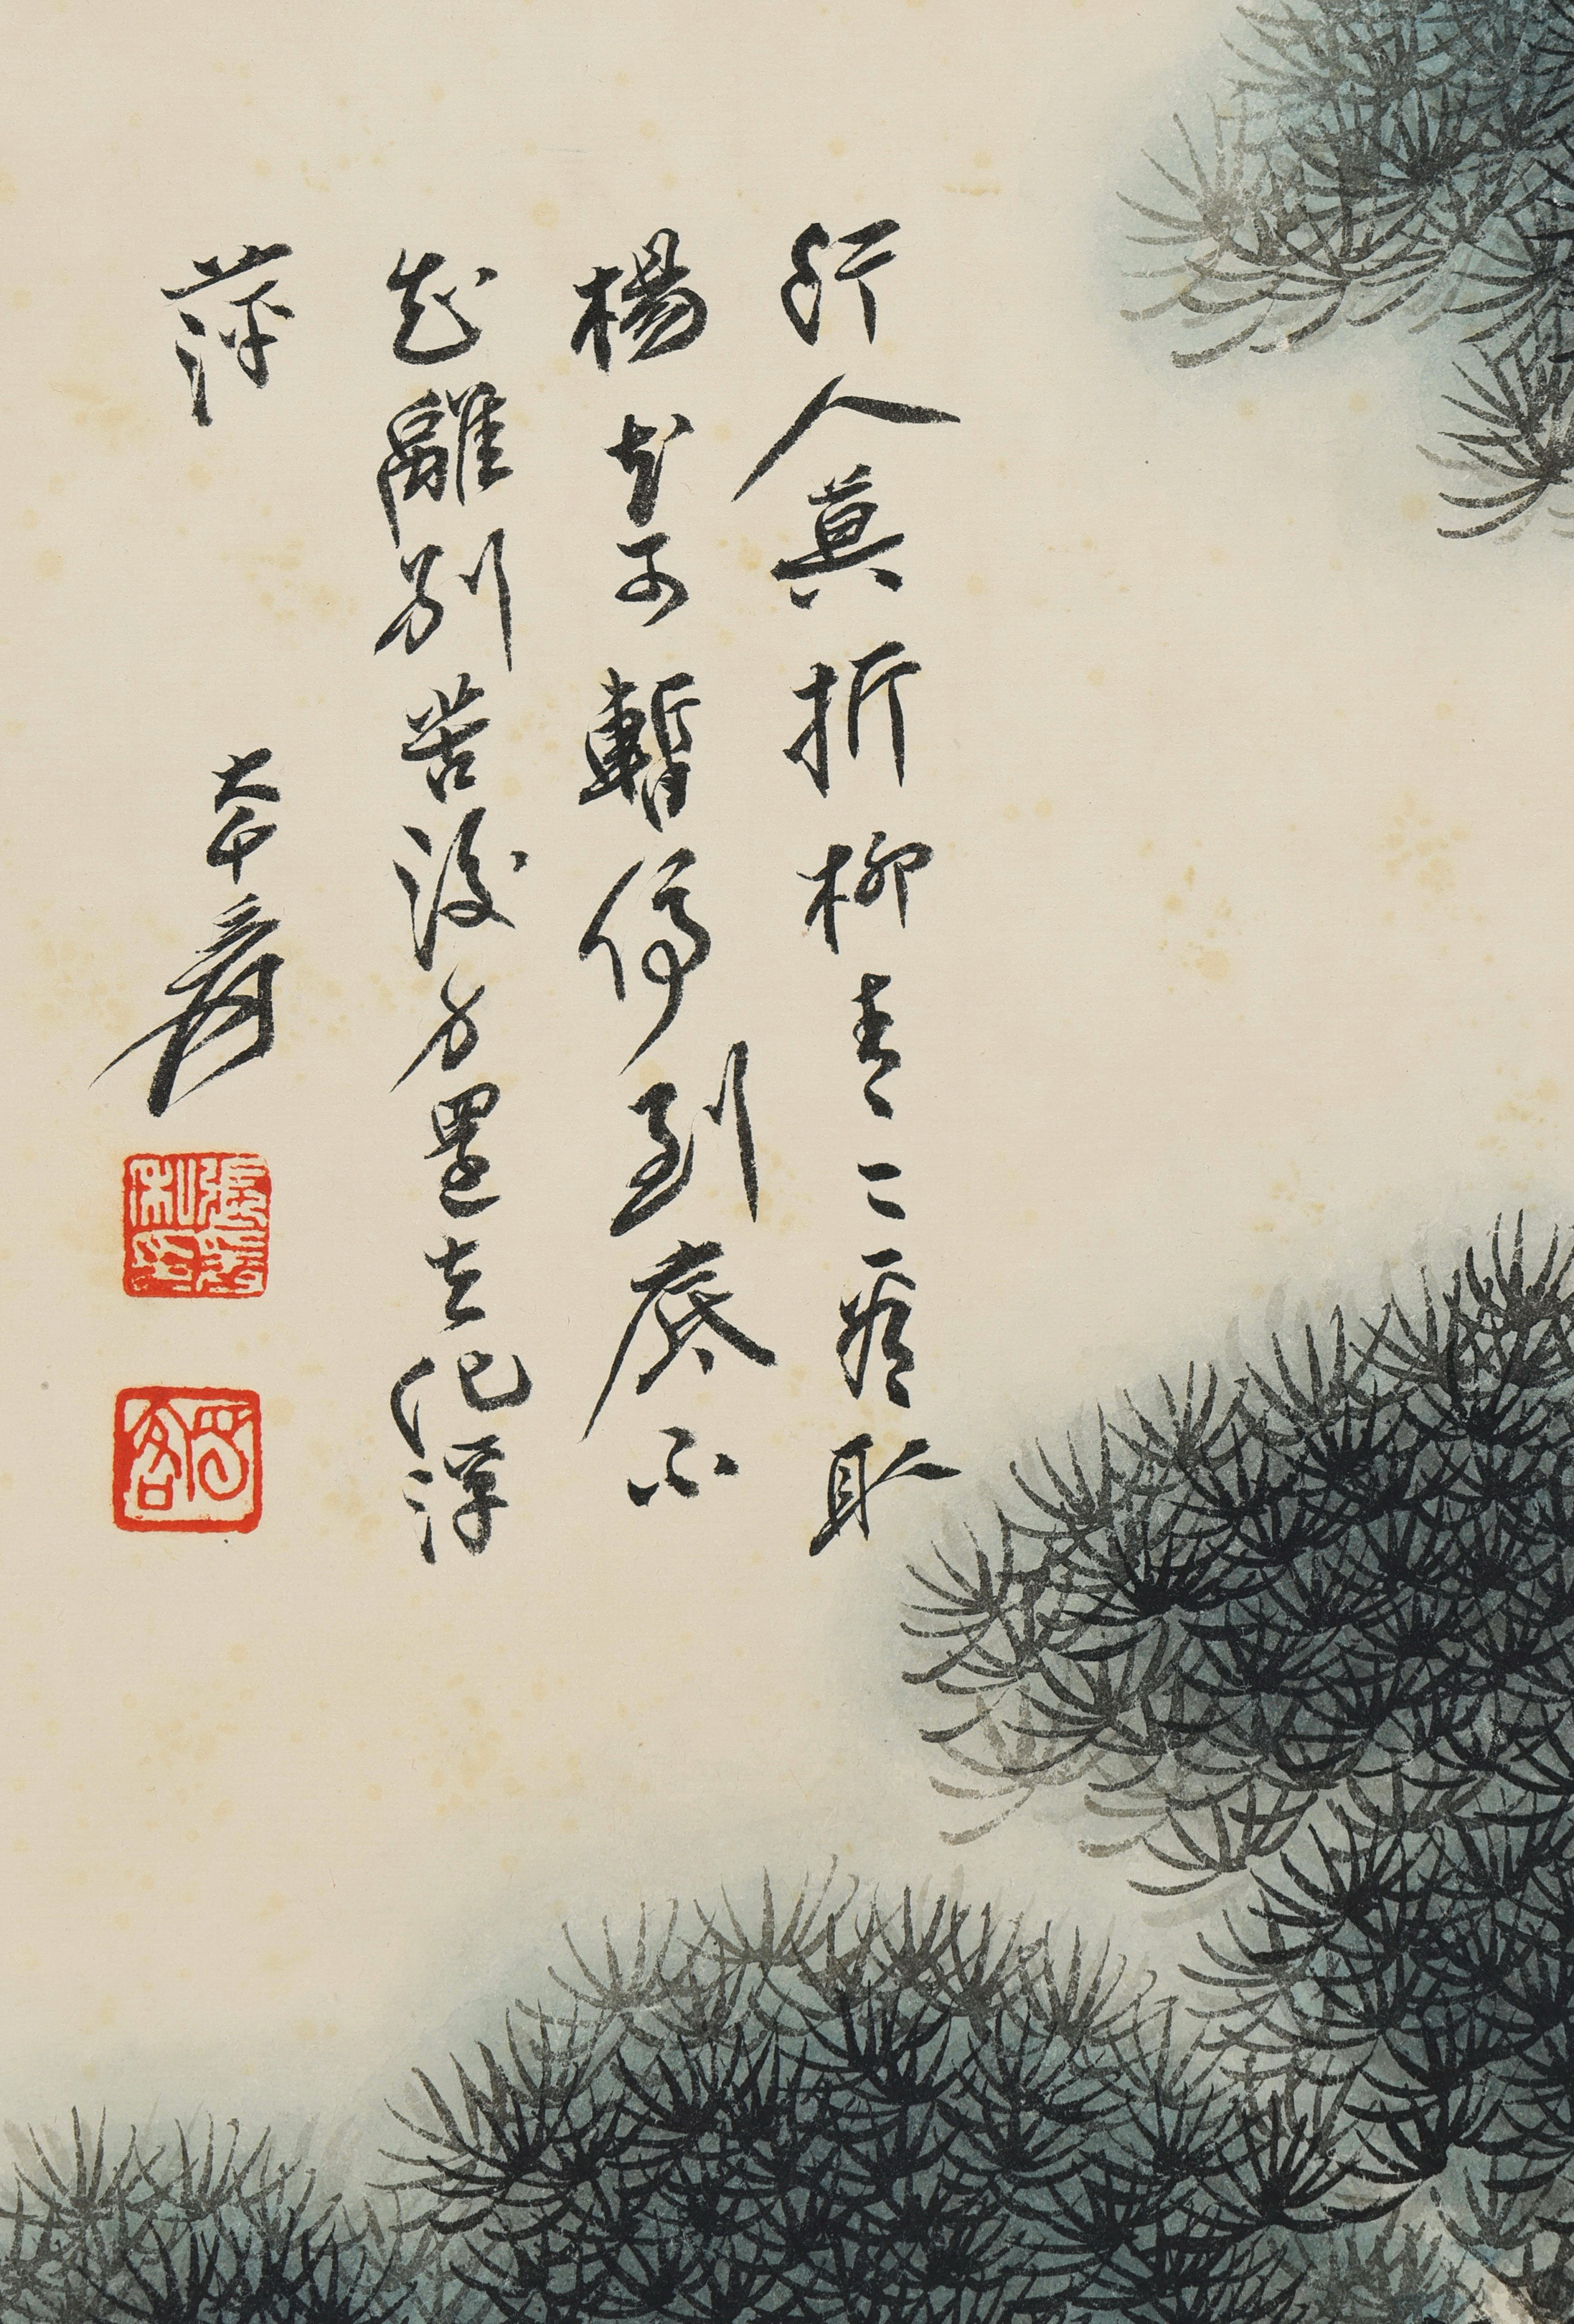 行人莫折柳青〻看取
楊花可暫停到底不
知離別苦後身還去化浮
萍 大千爰
張爰私印
蜀客